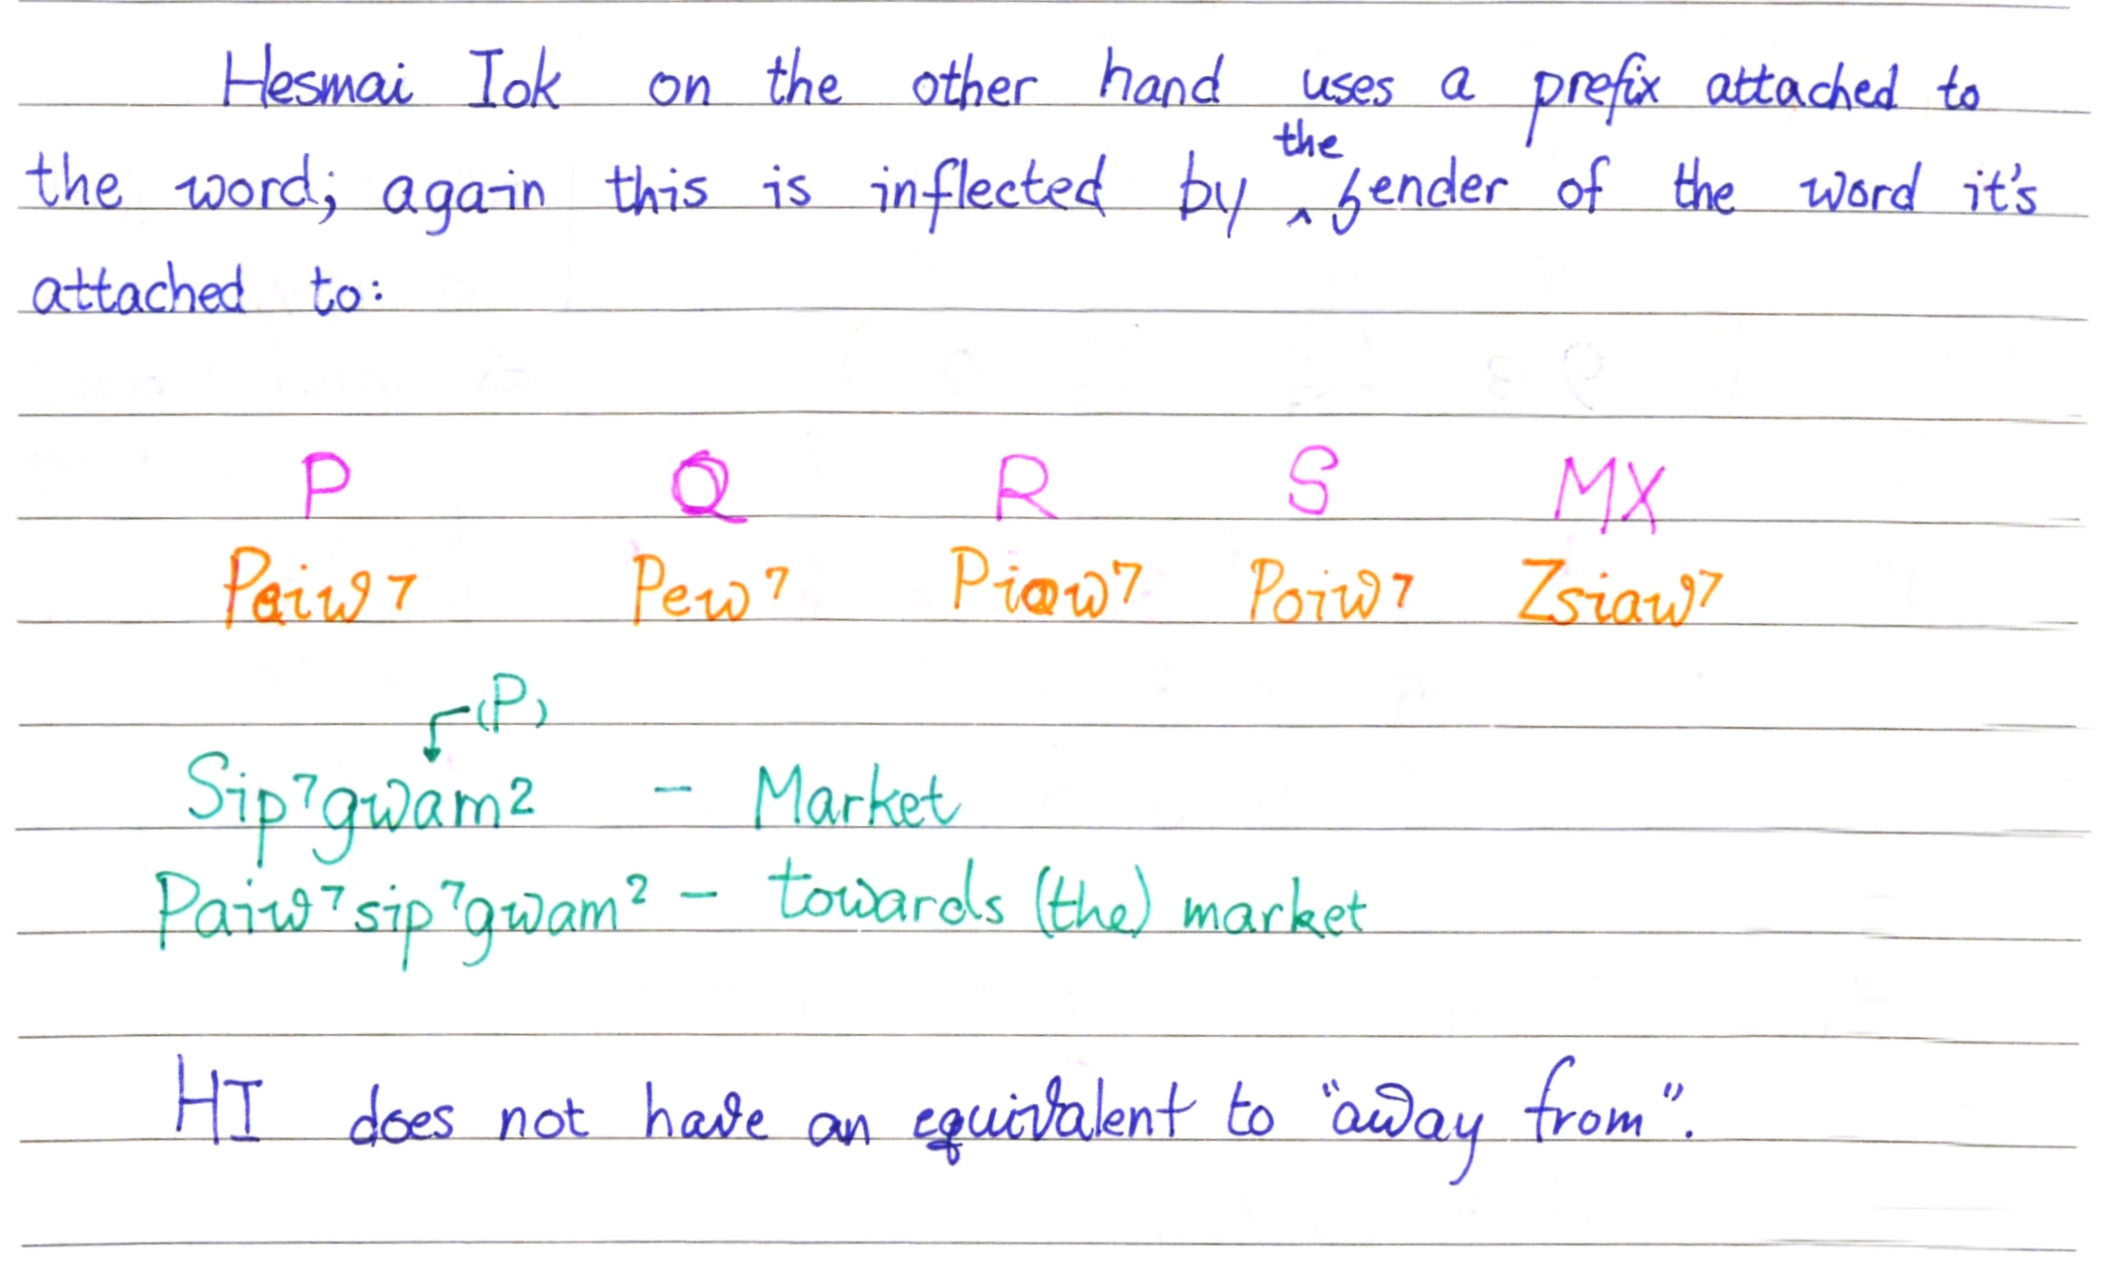 Hesmai Iok on the other hand uses a prefix attached to
the word; again this is inflected by the gender of the word it's
attached to:
P Q R S MX
Paiw⁷ Pew⁷ Piaw⁷ Poiw⁷ Zsiaw⁷
(P)
Sip⁷gwam² - Market
Paiw⁷sip⁷gwam² - towards (the) market
HI does not have an equivalent to "away from".